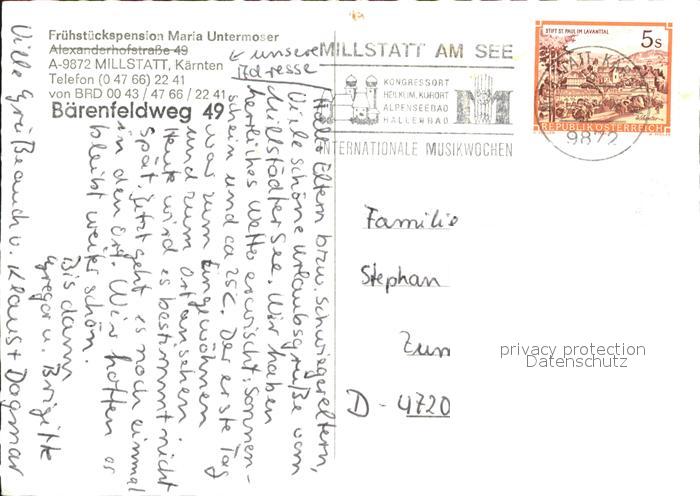 Frühstückspension Maria Untermoser
Alexanderhofstraße 49
A-9872 MILLSTATT, Kärnten
Telefon (0 47 66) 22 41
von BRD 00 43 / 47 66 / 22 41
Bärenfeldweg 49
← unsere
Adresse
Hallo Eltern bzw. Schwiegereltern,
Viele schöne Urlaubsgrüße vom
Millstädter See. Wir haben
herrliches Wetter erwischt: Sonnen-
schein und ca 25C. Der erste Tag
war zum Eingewöhnen
und zum Ort ansehen.
Heute wird es bestimmt nicht
spät. Jetzt geht es noch einmal
in den Ort. Wir hoffen es
bleibt weiter schön.
Bis dann
Gregor u. Brigitte
Viele Grüße auch v. Klaus + Dagmar
MILLSTATT AM SEE
KONGRESSORT
HEILKLIM. KURORT
ALPENSEEBAD
HALLENBAD
INTERNATIONALE MUSIKWOCHEN
STIFT ST. PAUL IM LAVANTTAL
5s
REPUBLIK ÖSTERREICH
9872
Familie
Stephan
Zum
D - 4720
privacy protection
Datenschutz